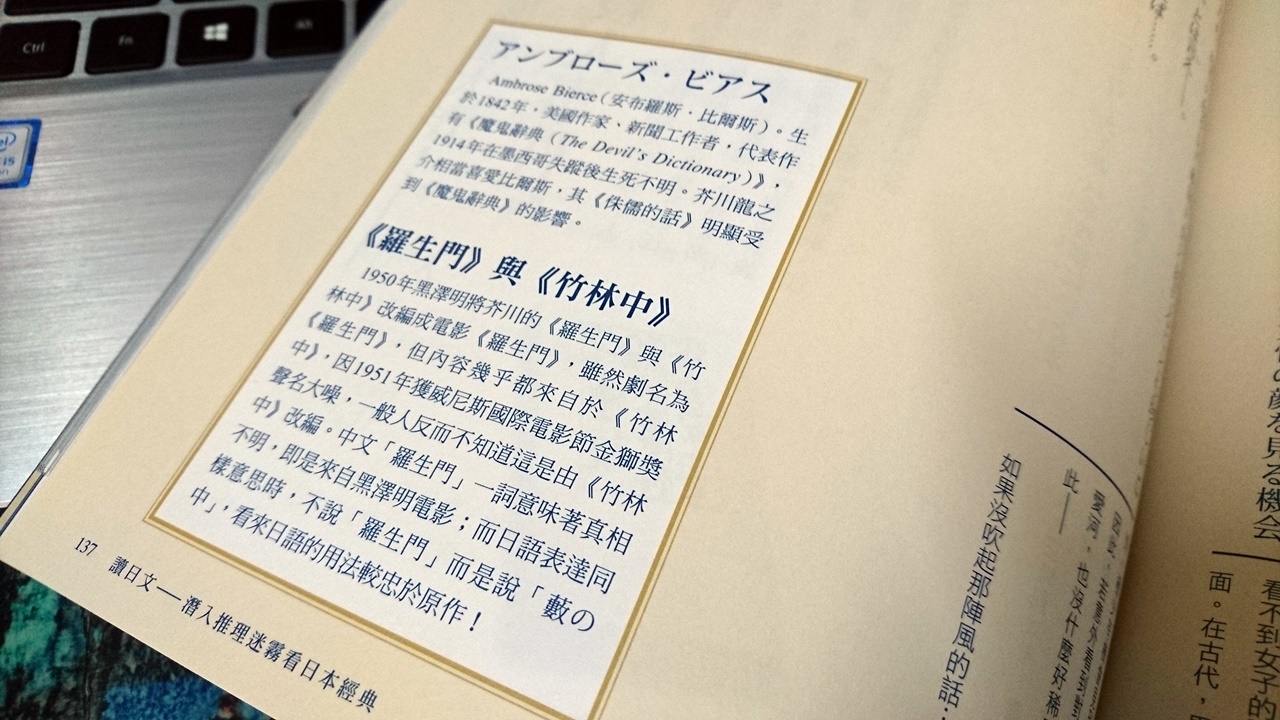 Ctrl
Fn
Alt
intel
i5
アンブローズ・ビアス
Ambrose Bierce（安布羅斯・比爾斯）。生
於1842年，美國作家、新聞工作者，代表作
有《魔鬼辭典（The Devil's Dictionary）》，
1914年在墨西哥失蹤後生死不明。芥川龍之
介相當喜愛比爾斯，其《侏儒的話》明顯受
到《魔鬼辭典》的影響。
《羅生門》與《竹林中》
1950年黑澤明將芥川的《羅生門》與《竹
林中》改編成電影《羅生門》，雖然劇名為
《羅生門》，但內容幾乎都來自於《竹林
中》，因1951年獲威尼斯國際電影節金獅獎
聲名大噪，一般人反而不知道這是由《竹林
中》改編。中文「羅生門」一詞意味著真相
不明，即是來自黑澤明電影；而日語表達同
樣意思時，不說「羅生門」而是說「藪の
中」，看來日語的用法較忠於原作！
137 讀日文──潛入推理迷霧看日本經典
此──
如果沒吹起那陣風的話：
の顔を見る機会
看不到女子的
面。在古代，